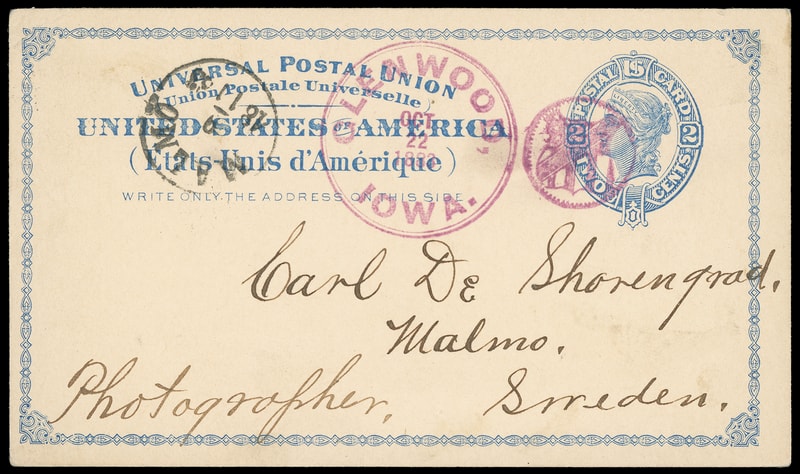 UNIVERSAL POSTAL UNION
(Union Postale Universelle)
UNITED STATES OF AMERICA
(États-Unis d'Amérique)
WRITE ONLY THE ADDRESS ON THIS SIDE
GLENWOOD,
OCT
22
IOWA.
MALMÖ
POSTAL CARD
U S
2 2
TWO CENTS
Carl De Shorengrad.
Malmo.
Photographer. Sweden.